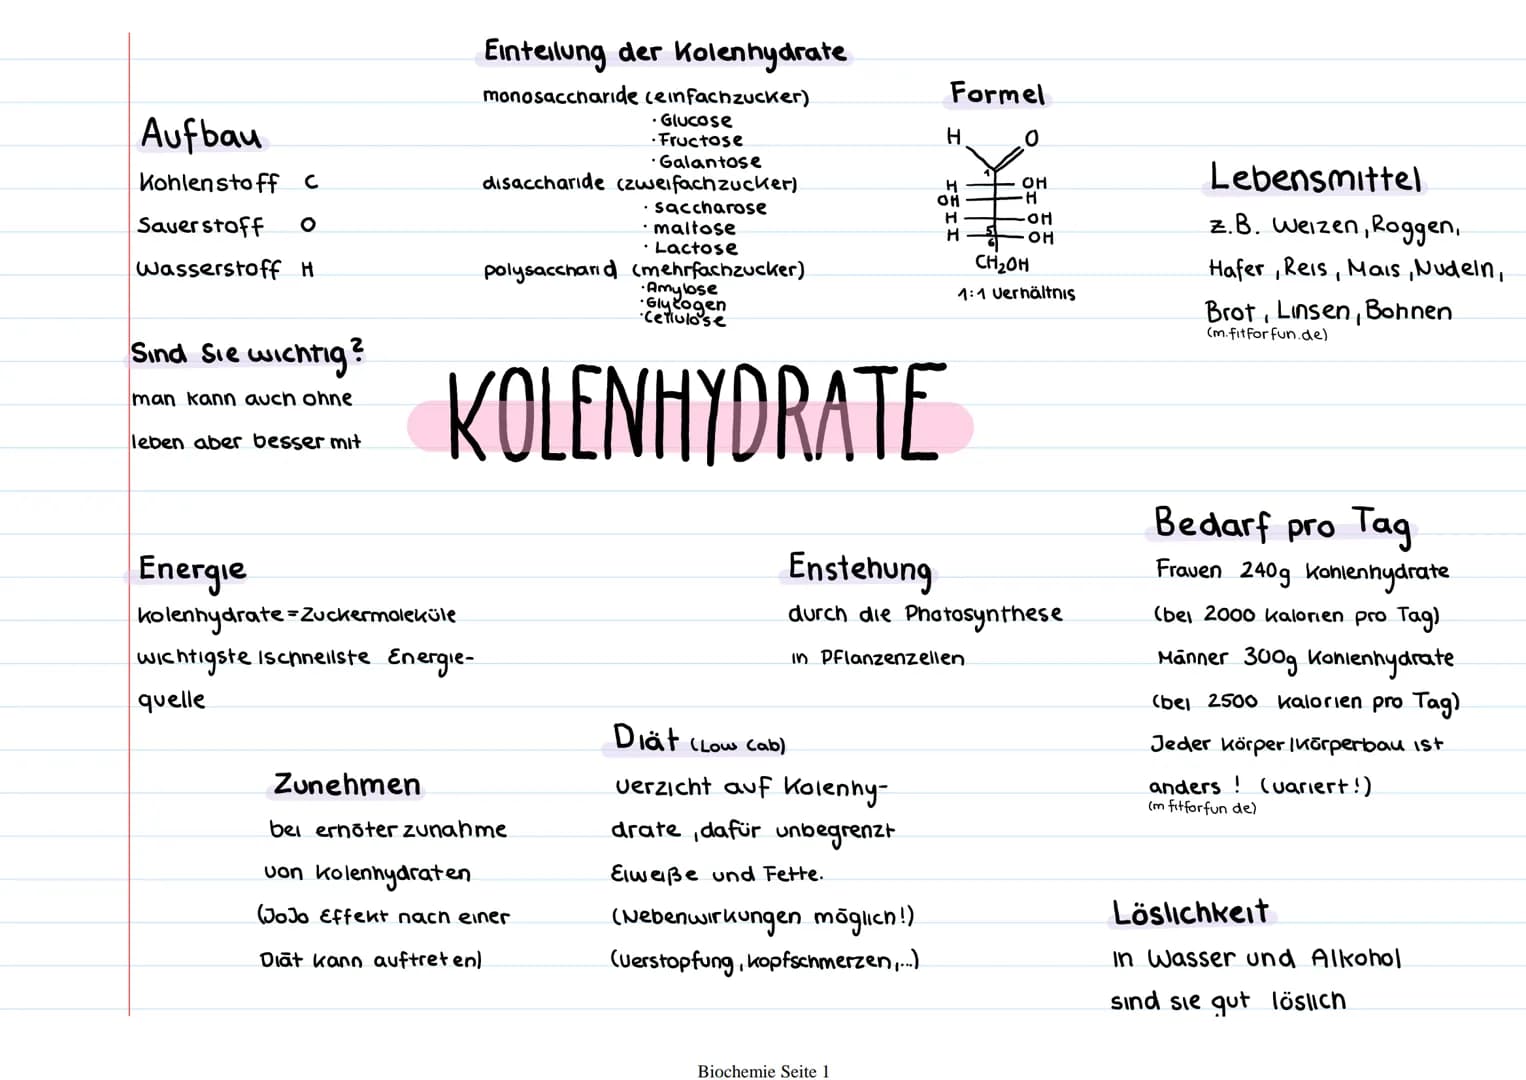 Einteilung der Kolenhydrate
monosaccharide (einfachzucker)
· Glucose
· Fructose
· Galantose
disaccharide (zweifachzucker)
· saccharose
· maltose
· Lactose
polysaccharid (mehrfachzucker)
· Amylose
· Glykogen
· Cellulose
Formel
H O
1
H OH
OH H
H OH
H 5 OH
6
CH₂OH
1:1 Verhältnis
Aufbau
Kohlenstoff C
Sauerstoff O
Wasserstoff H
Lebensmittel
z.B. Weizen, Roggen,
Hafer, Reis, Mais, Nudeln,
Brot, Linsen, Bohnen
(m.fitforfun.de)
Sind Sie wichtig?
man kann auch ohne
leben aber besser mit
KOLENHYDRATE
Energie
Kolenhydrate = Zuckermoleküle
wichtigste/schnellste Energie-
quelle
Enstehung
durch die Photosynthese
in Pflanzenzellen
Bedarf pro Tag
Frauen 240g Kohlenhydrate
(bei 2000 Kalorien pro Tag)
Männer 300g Kohlenhydrate
(bei 2500 Kalorien pro Tag)
Jeder Körper/Körperbau ist
anders! (variert!)
(m fitforfun de)
Zunehmen
bei erhöter zunahme
von Kolenhydraten
(JoJo Effekt nach einer
Diät kann auftreten)
Diät (Low Cab)
Verzicht auf Kolenhy-
drate, dafür unbegrenzt
Eiweiße und Fette.
(Nebenwirkungen möglich!)
(Verstopfung, kopfschmerzen,...)
Löslichkeit
in Wasser und Alkohol
sind sie gut löslich
Biochemie Seite 1